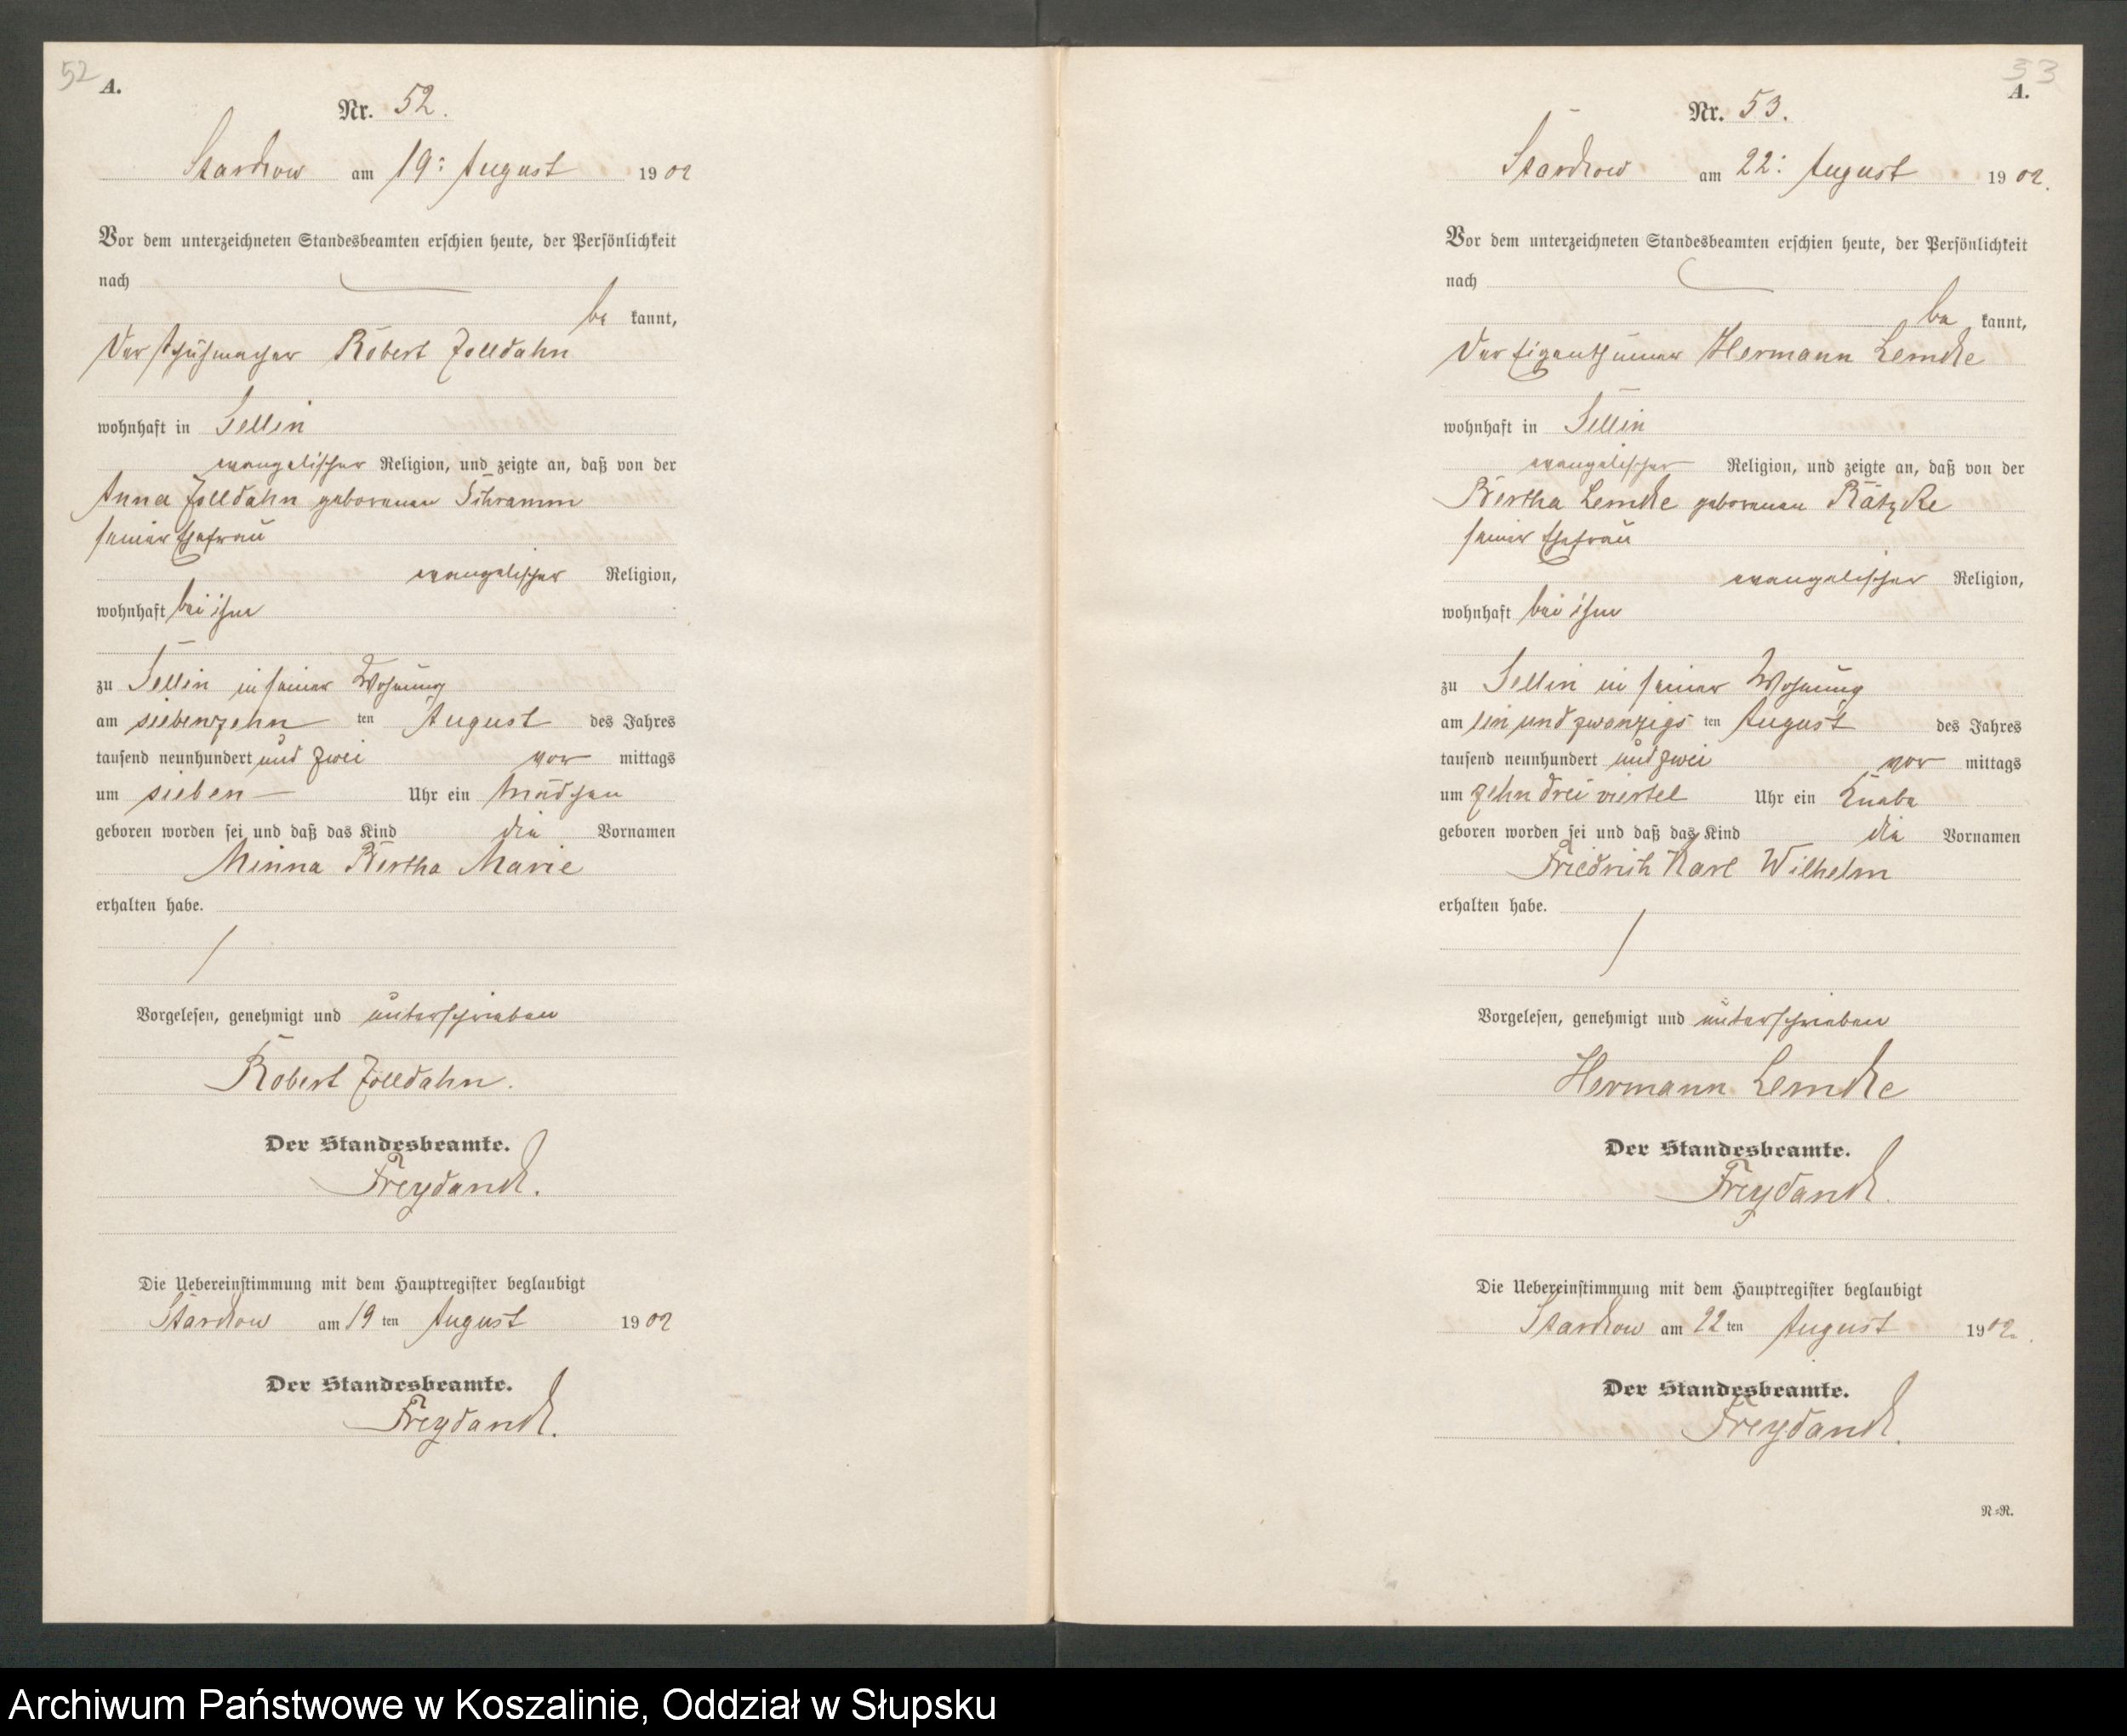 52
A.
Nr. 52.
Starckow am 19: August 1902
Vor dem unterzeichneten Standesbeamten erschien heute, der Persönlichkeit
nach
be kannt,
der Schuhmacher Robert Zolldahn
wohnhaft in Sellin
evangelischer Religion, und zeigte an, daß von der
Anna Zolldahn geborenen Schramm
seiner Ehefrau
evangelischer Religion,
wohnhaft bei ihm
zu Sellin in seiner Wohnung
am siebenzehn ten August des Jahres
tausend neunhundert und zwei vor mittags
um sieben Uhr ein Mädchen
geboren worden sei und daß das Kind die Vornamen
Minna Bertha Marie
erhalten habe.
Vorgelesen, genehmigt und unterschrieben
Robert Zolldahn.
Der Standesbeamte.
Freydanck.
Die Uebereinstimmung mit dem Hauptregister beglaubigt
Starckow am 19 ten August 1902
Der Standesbeamte.
Freydanck.
53
A.
Nr. 53.
Starckow am 22: August 1902.
Vor dem unterzeichneten Standesbeamten erschien heute, der Persönlichkeit
nach
be kannt,
der Eigenthümer Hermann Lemcke
wohnhaft in Sellin
evangelischer Religion, und zeigte an, daß von der
Bertha Lemcke geborenen Rätzke
seiner Ehefrau
evangelischer Religion,
wohnhaft bei ihm
zu Sellin in seiner Wohnung
am ein und zwanzigs ten August des Jahres
tausend neunhundert und zwei vor mittags
um zehn drei viertel Uhr ein Knabe
geboren worden sei und daß das Kind die Vornamen
Friedrich Karl Wilhelm
erhalten habe.
Vorgelesen, genehmigt und unterschrieben
Hermann Lemcke
Der Standesbeamte.
Freydanck.
Die Uebereinstimmung mit dem Hauptregister beglaubigt
Starckow am 22 ten August 1902.
Der Standesbeamte.
Freydanck.
N=R.
Archiwum Państwowe w Koszalinie, Oddział w Słupsku